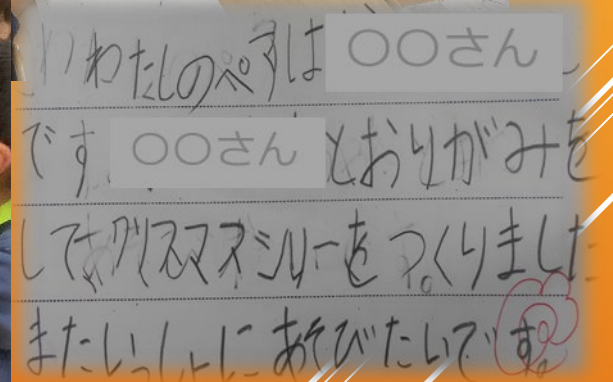 わたしのぺすは〇〇さん
です。〇〇さんとおりがみを
してクリスマスシリーをつくりました
またいっしょにあそびたいです。